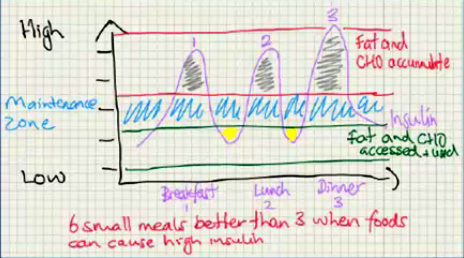 High
1
2
3
Fat and
CHO accumulate
Maintenance
zone
Insulin
Fat and CHO
accessed + used
Low
Breakfast
1
Lunch
2
Dinner
3
6 small meals better than 3 when foods
can cause high insulin